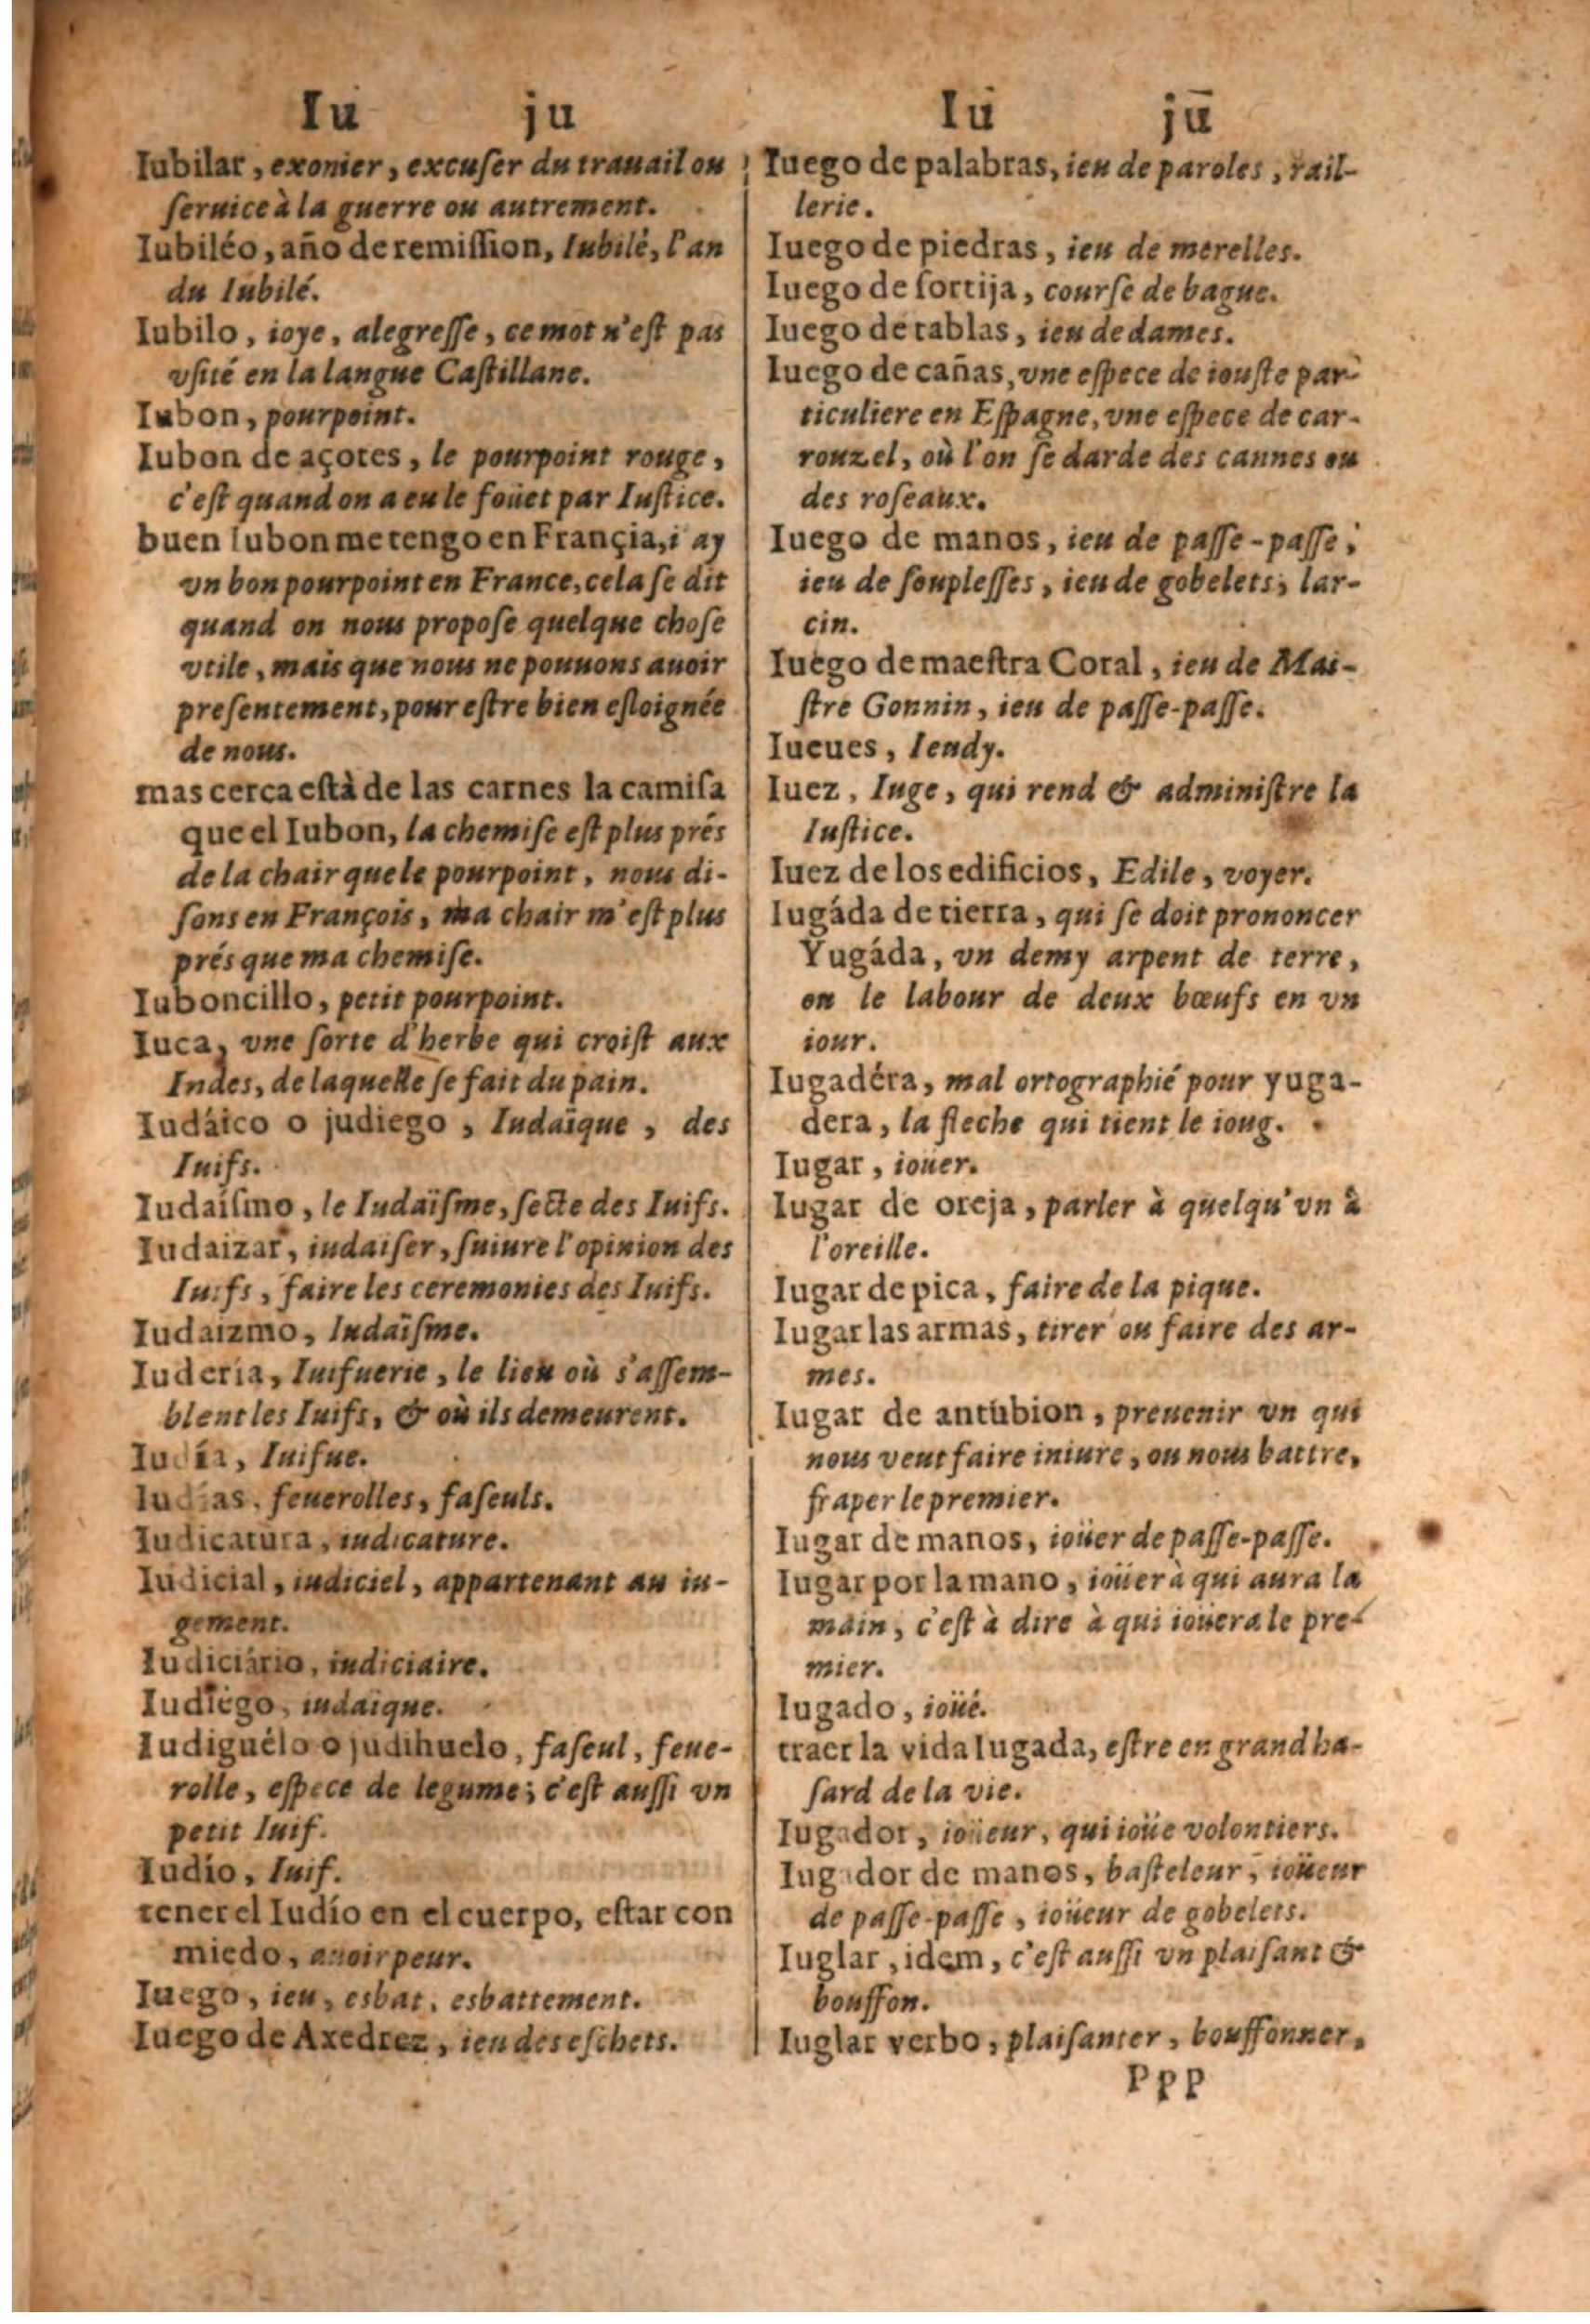 Iu ju
Iubilar, exonier, excuſer du trauail ou
ſeruice à la guerre ou autrement.
Iubiléo, año de remiſſion, Iubilé, l'an
du Iubilé.
Iubilo, ioye, alegreſſe, ce mot n'eſt pas
vſité en la langue Caſtillane.
Iubon, pourpoint.
Iubon de açotes, le pourpoint rouge,
c'eſt quand on a eu le foüet par Iuſtice.
buen Iubon me tengo en Françia, i'ay
vn bon pourpoint en France, cela ſe dit
quand on nous propoſe quelque choſe
vtile, mais que nous ne pouuons auoir
preſentement, pour eſtre bien eſloignée
de nous.
mas cerca eſtà de las carnes la camiſa
que el Iubon, la chemiſe eſt plus prés
de la chair que le pourpoint, nous di-
ſons en François, ma chair m'eſt plus
prés que ma chemiſe.
Iuboncillo, petit pourpoint.
Iuca, vne ſorte d'herbe qui croiſt aux
Indes, de laquelle ſe fait du pain.
Iudáico o judiego, Iudaïque, des
Iuifs.
Iudaíſmo, le Iudaïſme, ſecte des Iuifs.
Iudaizar, iudaiſer, ſuiure l'opinion des
Iuifs, faire les ceremonies des Iuifs.
Iudaizmo, Iudaïſme.
Iudería, Iuifuerie, le lieu où s'aſſem-
blent les Iuifs, & où ils demeurent.
Iudía, Iuifue.
Iudías, feuerolles, faſeuls.
Iudicatura, iudicature.
Iudicial, iudiciel, appartenant au iu-
gement.
Iudiciário, iudiciaire.
Iudiego, iudaïque.
Iudiguélo o judihuelo, faſeul, feue-
rolle, eſpece de legume; c'eſt auſſi vn
petit Iuif.
Iudío, Iuif.
tener el Iudío en el cuerpo, eſtar con
miedo, auoir peur.
Iuego, ieu, esbat, esbattement.
Iuego de Axedrez, ieu des eſchets.
Iu jū
Iuego de palabras, ieu de paroles, rail-
lerie.
Iuego de piedras, ieu de merelles.
Iuego de ſortija, courſe de bague.
Iuego de tablas, ieu de dames.
Iuego de cañas, vne eſpece de iouſte par-
ticuliere en Eſpagne, vne eſpece de car-
rouzel, où l'on ſe darde des cannes ou
des roſeaux.
Iuego de manos, ieu de paſſe-paſſe;
ieu de ſoupleſſes, ieu de gobelets, lar-
cin.
Iuego de maeſtra Coral, ieu de Mai-
ſtre Gonnin, ieu de paſſe-paſſe.
Iueues, Ieudy.
Iuez, Iuge, qui rend & adminiſtre la
Iuſtice.
Iuez de los edificios, Edile, voyer.
Iugáda de tierra, qui ſe doit prononcer
Yugáda, vn demy arpent de terre,
ou le labour de deux bœufs en vn
iour.
Iugadéra, mal ortographié pour yuga-
dera, la fleche qui tient le ioug.
Iugar, iouer.
Iugar de oreja, parler à quelqu'vn à
l'oreille.
Iugar de pica, faire de la pique.
Iugar las armas, tirer ou faire des ar-
mes.
Iugar de antubion, preuenir vn qui
nous veut faire iniure, ou nous battre,
fraper le premier.
Iugar de manos, ioüer de paſſe-paſſe.
Iugar por la mano, ioüer à qui aura la
main, c'eſt à dire à qui ioüera le pre-
mier.
Iugado, ioüé.
traer la vida Iugada, eſtre en grand ha-
ſard de la vie.
Iugador, ioüeur, qui ioüe volontiers.
Iugador de manos, baſteleur, ioüeur
de paſſe-paſſe, ioüeur de gobelets.
Iuglar, idem, c'eſt auſſi vn plaiſant &
bouffon.
Iuglar verbo, plaiſanter, bouffonner,
Ppp